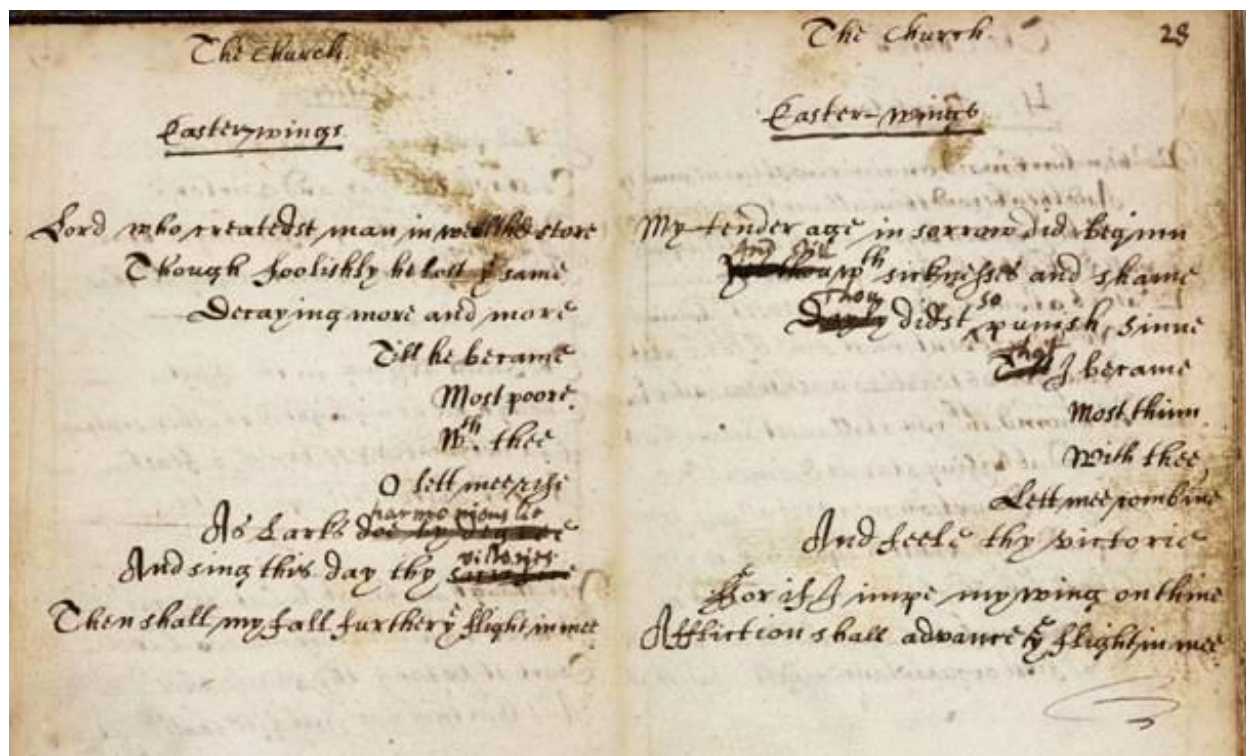 The Church.
Easter-wings.
Lord who createdst man in wealth & store
Though foolishly he lost yͤ same
Decaying more and more
Till he became
Most poore.
Wᵗʰ. thee
O lett mee rise
harmoniouslie
As Larks doe by degree
victories
And sing this day thy sacrifice
Then shall my fall further yͤ flight in mee
The Church. 28
Easter-wings.
My tender age in sorrow did beginn
And still
Yet thou wᵗʰ sicknesses and shame
Thou so
Dayly didst punish sinne
That
I became
Most thinn
With thee,
Lett mee combine
And feele thy victorie
For if I impe my wing on thine
Affliction shall advance yͤ flight in mee.